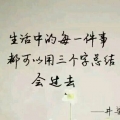 生活中的每一件事
都可以用三个字总结
会过去